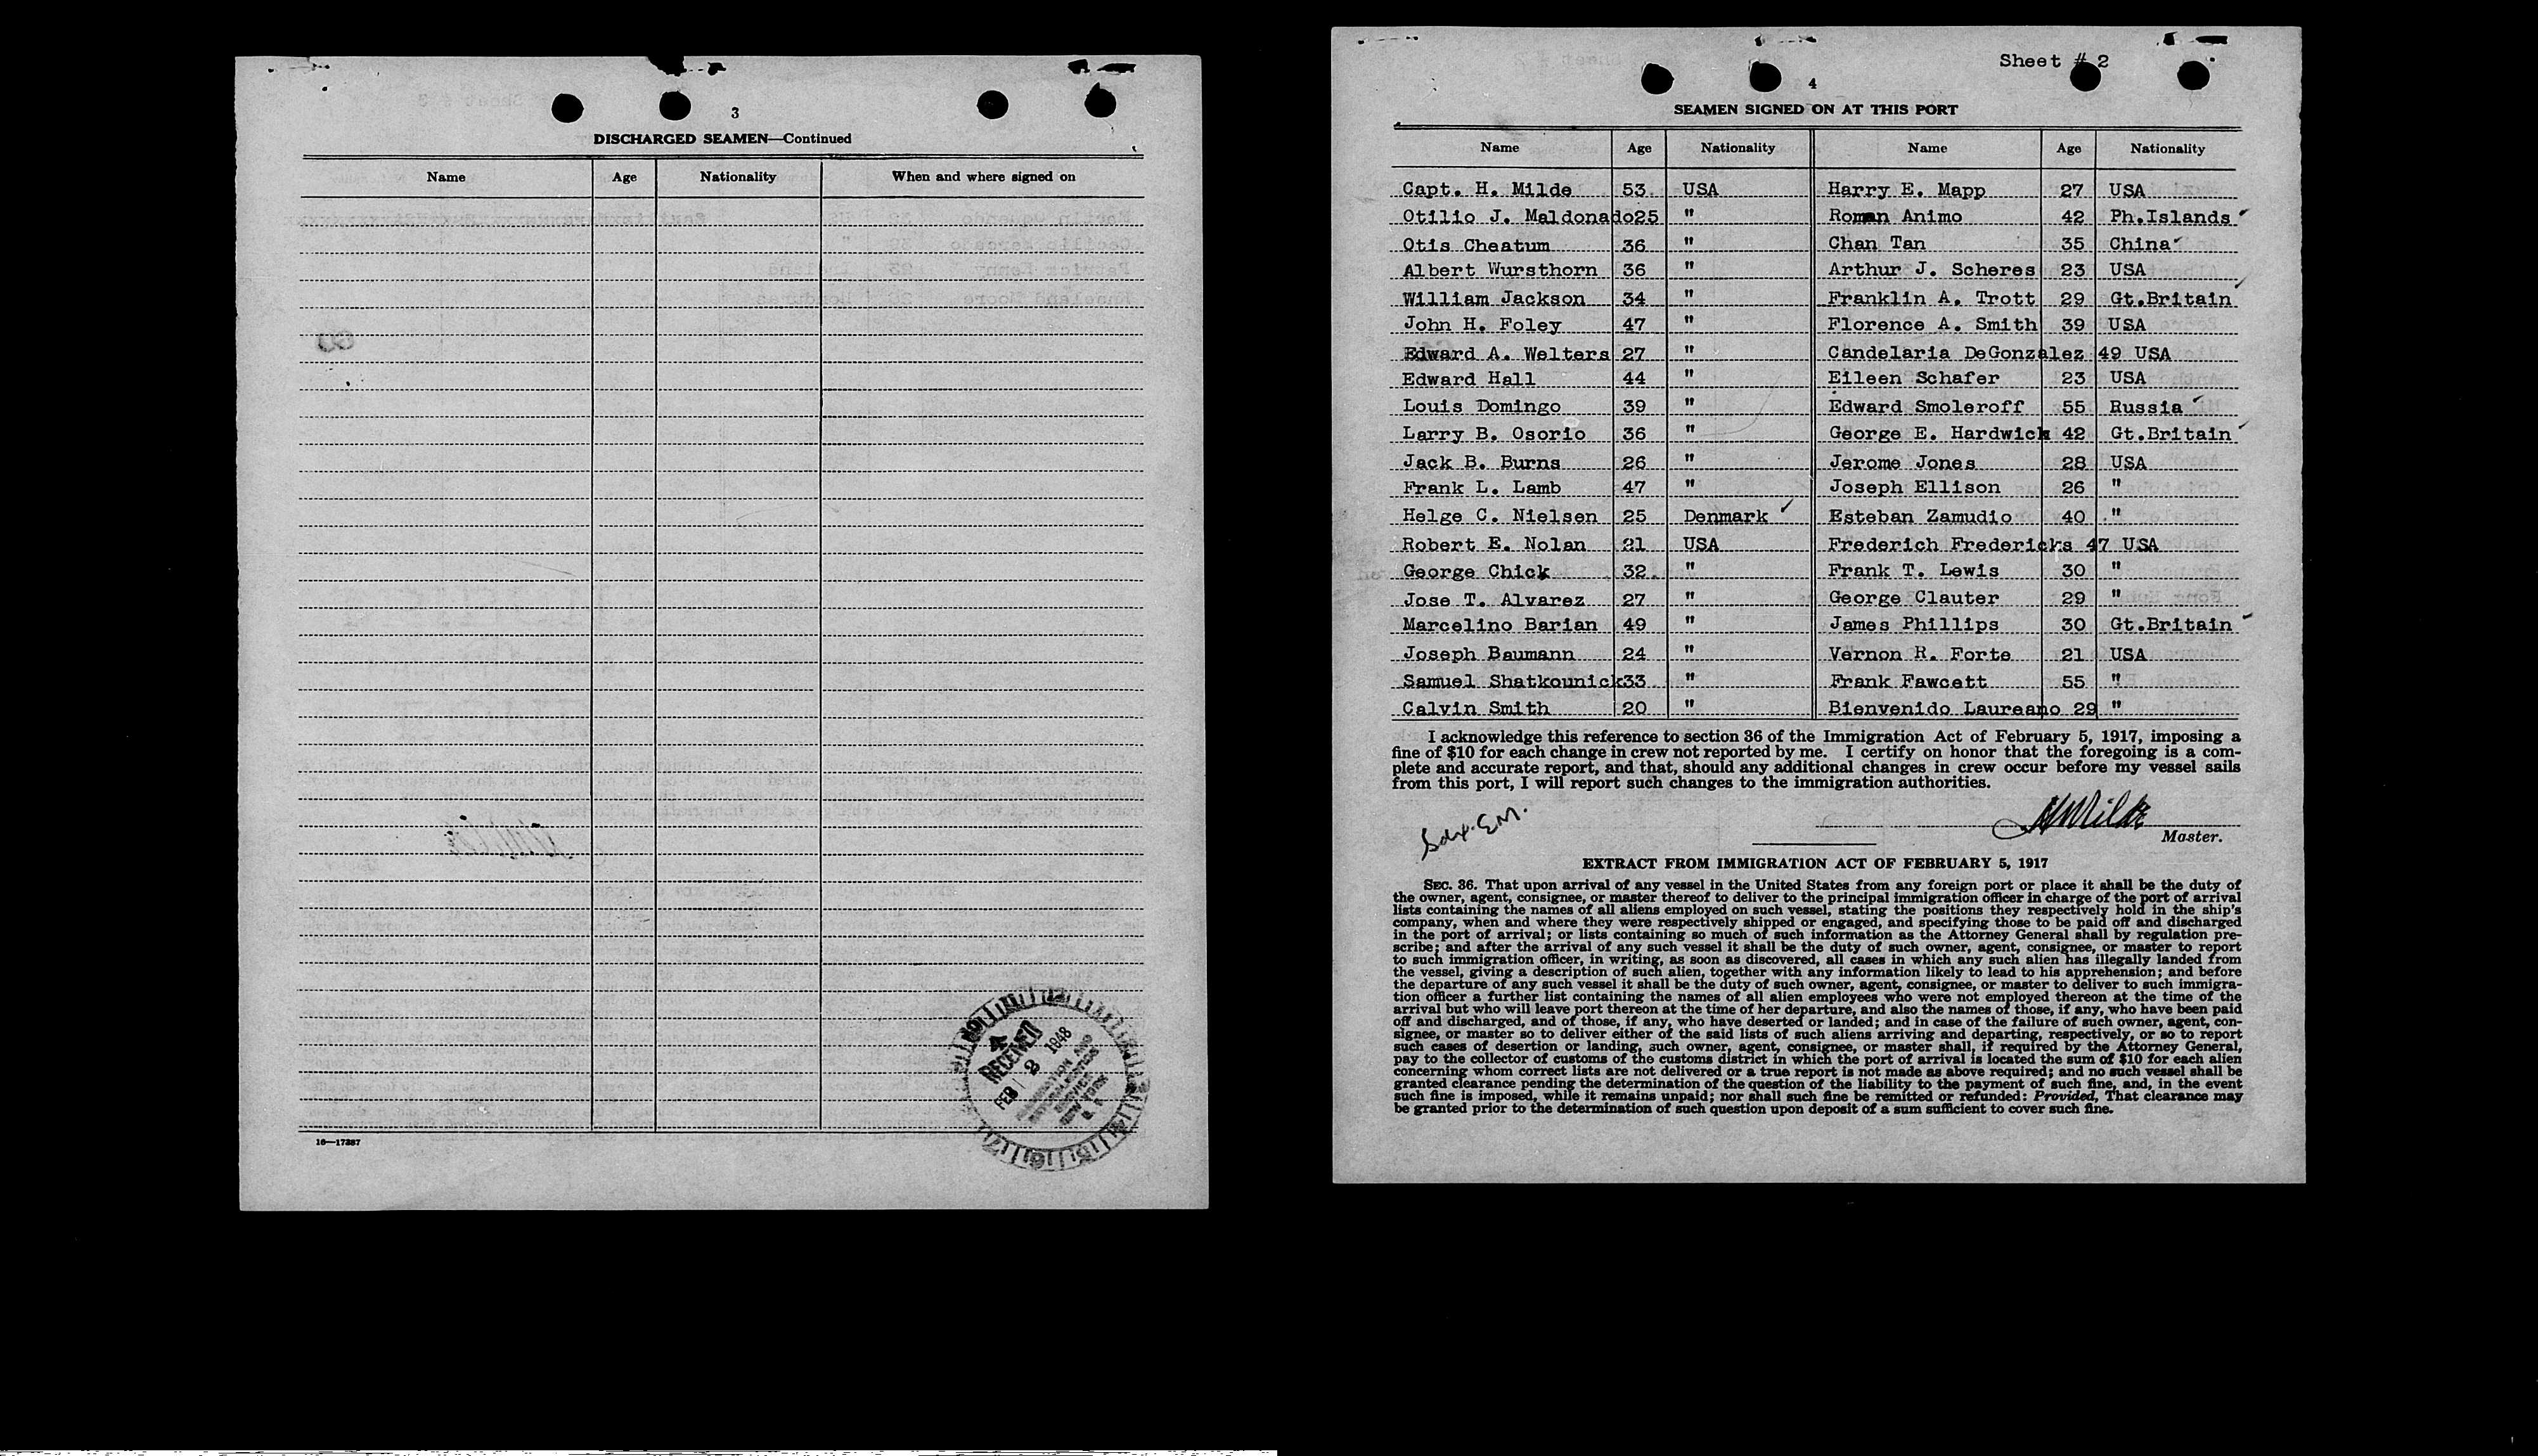 3
DISCHARGED SEAMEN—Continued
Name Age Nationality When and where signed on
RECEIVED
FEB 2 1948
IMMIGRATION AND
NATURALIZATION
SERVICE
NEW YORK
16—17287
Sheet # 2
4
SEAMEN SIGNED ON AT THIS PORT
Name Age Nationality Name Age Nationality
Capt. H. Milde 53 USA Harry E. Mapp 27 USA
Otilio J. Maldonado 25 " Roman Animo 42 Ph.Islands
Otis Cheatum 36 " Chan Tan 35 China
Albert Wursthorn 36 " Arthur J. Scheres 23 USA
William Jackson 34 " Franklin A. Trott 29 Gt.Britain
John H. Foley 47 " Florence A. Smith 39 USA
Edward A. Welters 27 " Candelaria DeGonzalez 49 USA
Edward Hall 44 " Eileen Schafer 23 USA
Louis Domingo 39 " Edward Smoleroff 55 Russia
Larry B. Osorio 36 " George E. Hardwick 42 Gt.Britain
Jack B. Burns 26 " Jerome Jones 28 USA
Frank L. Lamb 47 " Joseph Ellison 26 "
Helge C. Nielsen 25 Denmark Esteban Zamudio 40 "
Robert E. Nolan 21 USA Frederich Fredericks 47 USA
George Chick 32 " Frank T. Lewis 30 "
Jose T. Alvarez 27 " George Clauter 29 "
Marcelino Barian 49 " James Phillips 30 Gt.Britain
Joseph Baumann 24 " Vernon R. Forte 21 USA
Samuel Shatkounick 33 " Frank Fawcett 55 "
Calvin Smith 20 " Bienvenido Laureano 29 "
I acknowledge this reference to section 36 of the Immigration Act of February 5, 1917, imposing a
fine of $10 for each change in crew not reported by me. I certify on honor that the foregoing is a com-
plete and accurate report, and that, should any additional changes in crew occur before my vessel sails
from this port, I will report such changes to the immigration authorities.
HMilde
Master.
EXTRACT FROM IMMIGRATION ACT OF FEBRUARY 5, 1917
SEC. 36. That upon arrival of any vessel in the United States from any foreign port or place it shall be the duty of
the owner, agent, consignee, or master thereof to deliver to the principal immigration officer in charge of the port of arrival
lists containing the names of all aliens employed on such vessel, stating the positions they respectively hold in the ship's
company, when and where they were respectively shipped or engaged, and specifying those to be paid off and discharged
in the port of arrival; or lists containing so much of such information as the Attorney General shall by regulation pre-
scribe; and after the arrival of any such vessel it shall be the duty of such owner, agent, consignee, or master to report
to such immigration officer, in writing, as soon as discovered, all cases in which any such alien has illegally landed from
the vessel, giving a description of such alien, together with any information likely to lead to his apprehension; and before
the departure of any such vessel it shall be the duty of such owner, agent, consignee, or master to deliver to such immigra-
tion officer a further list containing the names of all alien employees who were not employed thereon at the time of the
arrival but who will leave port thereon at the time of her departure, and also the names of those, if any, who have been paid
off and discharged, and of those, if any, who have deserted or landed; and in case of the failure of such owner, agent, con-
signee, or master so to deliver either of the said lists of such aliens arriving and departing, respectively, or so to report
such cases of desertion or landing, such owner, agent, consignee, or master shall, if required by the Attorney General,
pay to the collector of customs of the customs district in which the port of arrival is located the sum of $10 for each alien
concerning whom correct lists are not delivered or a true report is not made as above required; and no such vessel shall be
granted clearance pending the determination of the question of the liability to the payment of such fine, and, in the event
such fine is imposed, while it remains unpaid; nor shall such fine be remitted or refunded: Provided, That clearance may
be granted prior to the determination of such question upon deposit of a sum sufficient to cover such fine.